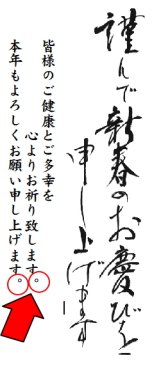 謹んで新春のお慶びを
申し上げます
皆様のご健康とご多幸を
心よりお祈り致します。
本年もよろしくお願い申し上げます。